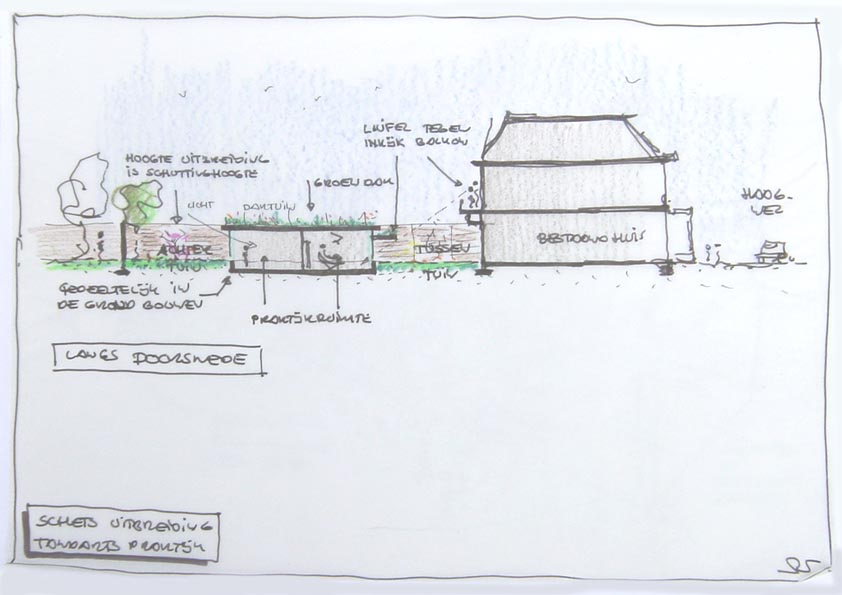 LUIFEL TEGEN
INKIJK BALKON
HOOGTE UITBREIDING
IS SCHUTTINGHOOGTE
GROEN DAK
LICHT
DAKTUIN
HOOG-
ACHTER
TUIN
TUSSEN
TUIN
BESTAAND HUIS
GEDEELTELIJK IN
DE GROND BOUWEN
PRAKTIJKRUIMTE
LANGS DOORSNEDE
SCHETS UITBREIDING
TANDARTS PRAKTIJK